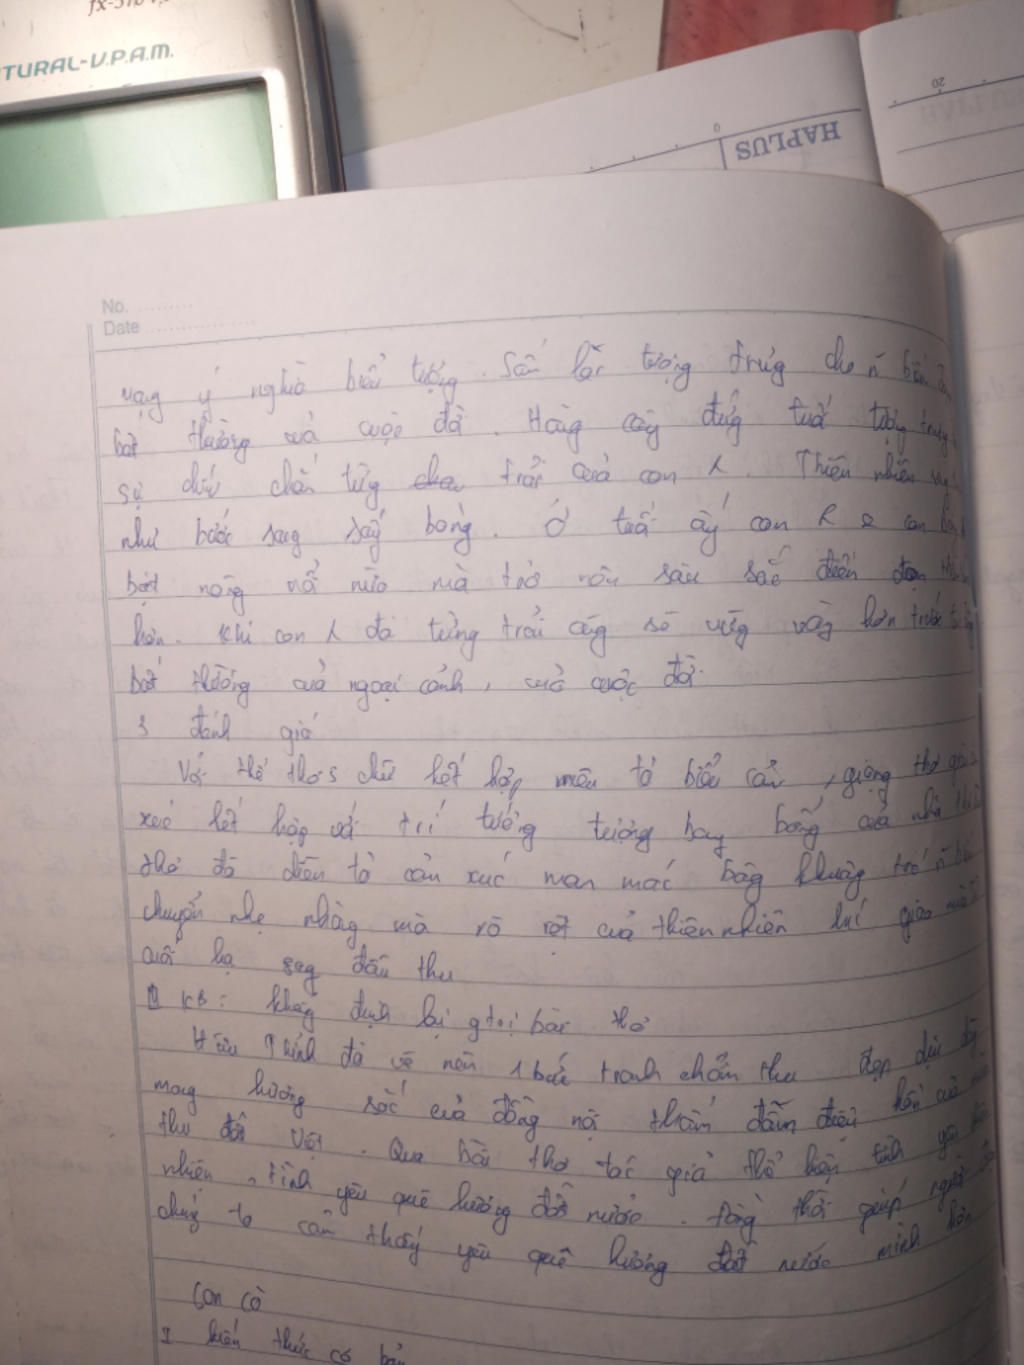 fx-570
NATURAL-V.P.A.M.
HAPLUS
0
20
No.
Date
mang ý nghĩa biểu tượng. Sấm là tượng trưng cho n~ biến
bất thường của cuộc đời. Hàng cây đứng tuổi tượng trưng
sự chín chắn từng trải của con
Thiên nhiên
như bước sang
bóng. Ở tuổi ấy con
bột nông nổi nữa mà trở nên sâu sắc điềm đạm
hơn. Khi con
đã từng trải cũng sẽ vững vàng hơn trước
bất thường của ngoại cảnh, của cuộc đời.
3 đánh giá
Với thể thơ 5 chữ kết hợp miêu tả biểu cảm, giọng thơ
xúc kết hợp với trí tưởng tượng bay bổng của nhà
thơ đã diễn tả cảm xúc man mác bâng khuâng trước n~ biến
chuyển nhẹ nhàng mà rõ rệt của thiên nhiên lúc giao mùa
cuối hạ sang đầu thu
KB: khẳng định lại g trị bài thơ
Hữu Thỉnh đã vẽ nên 1 bức tranh chớm thu đẹp dịu
mang hương sắc của đồng nội thấm đẫm điệu hồn của
thu đất Việt. Qua bài thơ tác giả thể hiện tình yêu
nhiên, tình yêu quê hương đất nước. đồng thời giúp người
chúng ta cảm thấy yêu quê hương đất nước mình hơn
Con cò
I kiến thức cơ bản